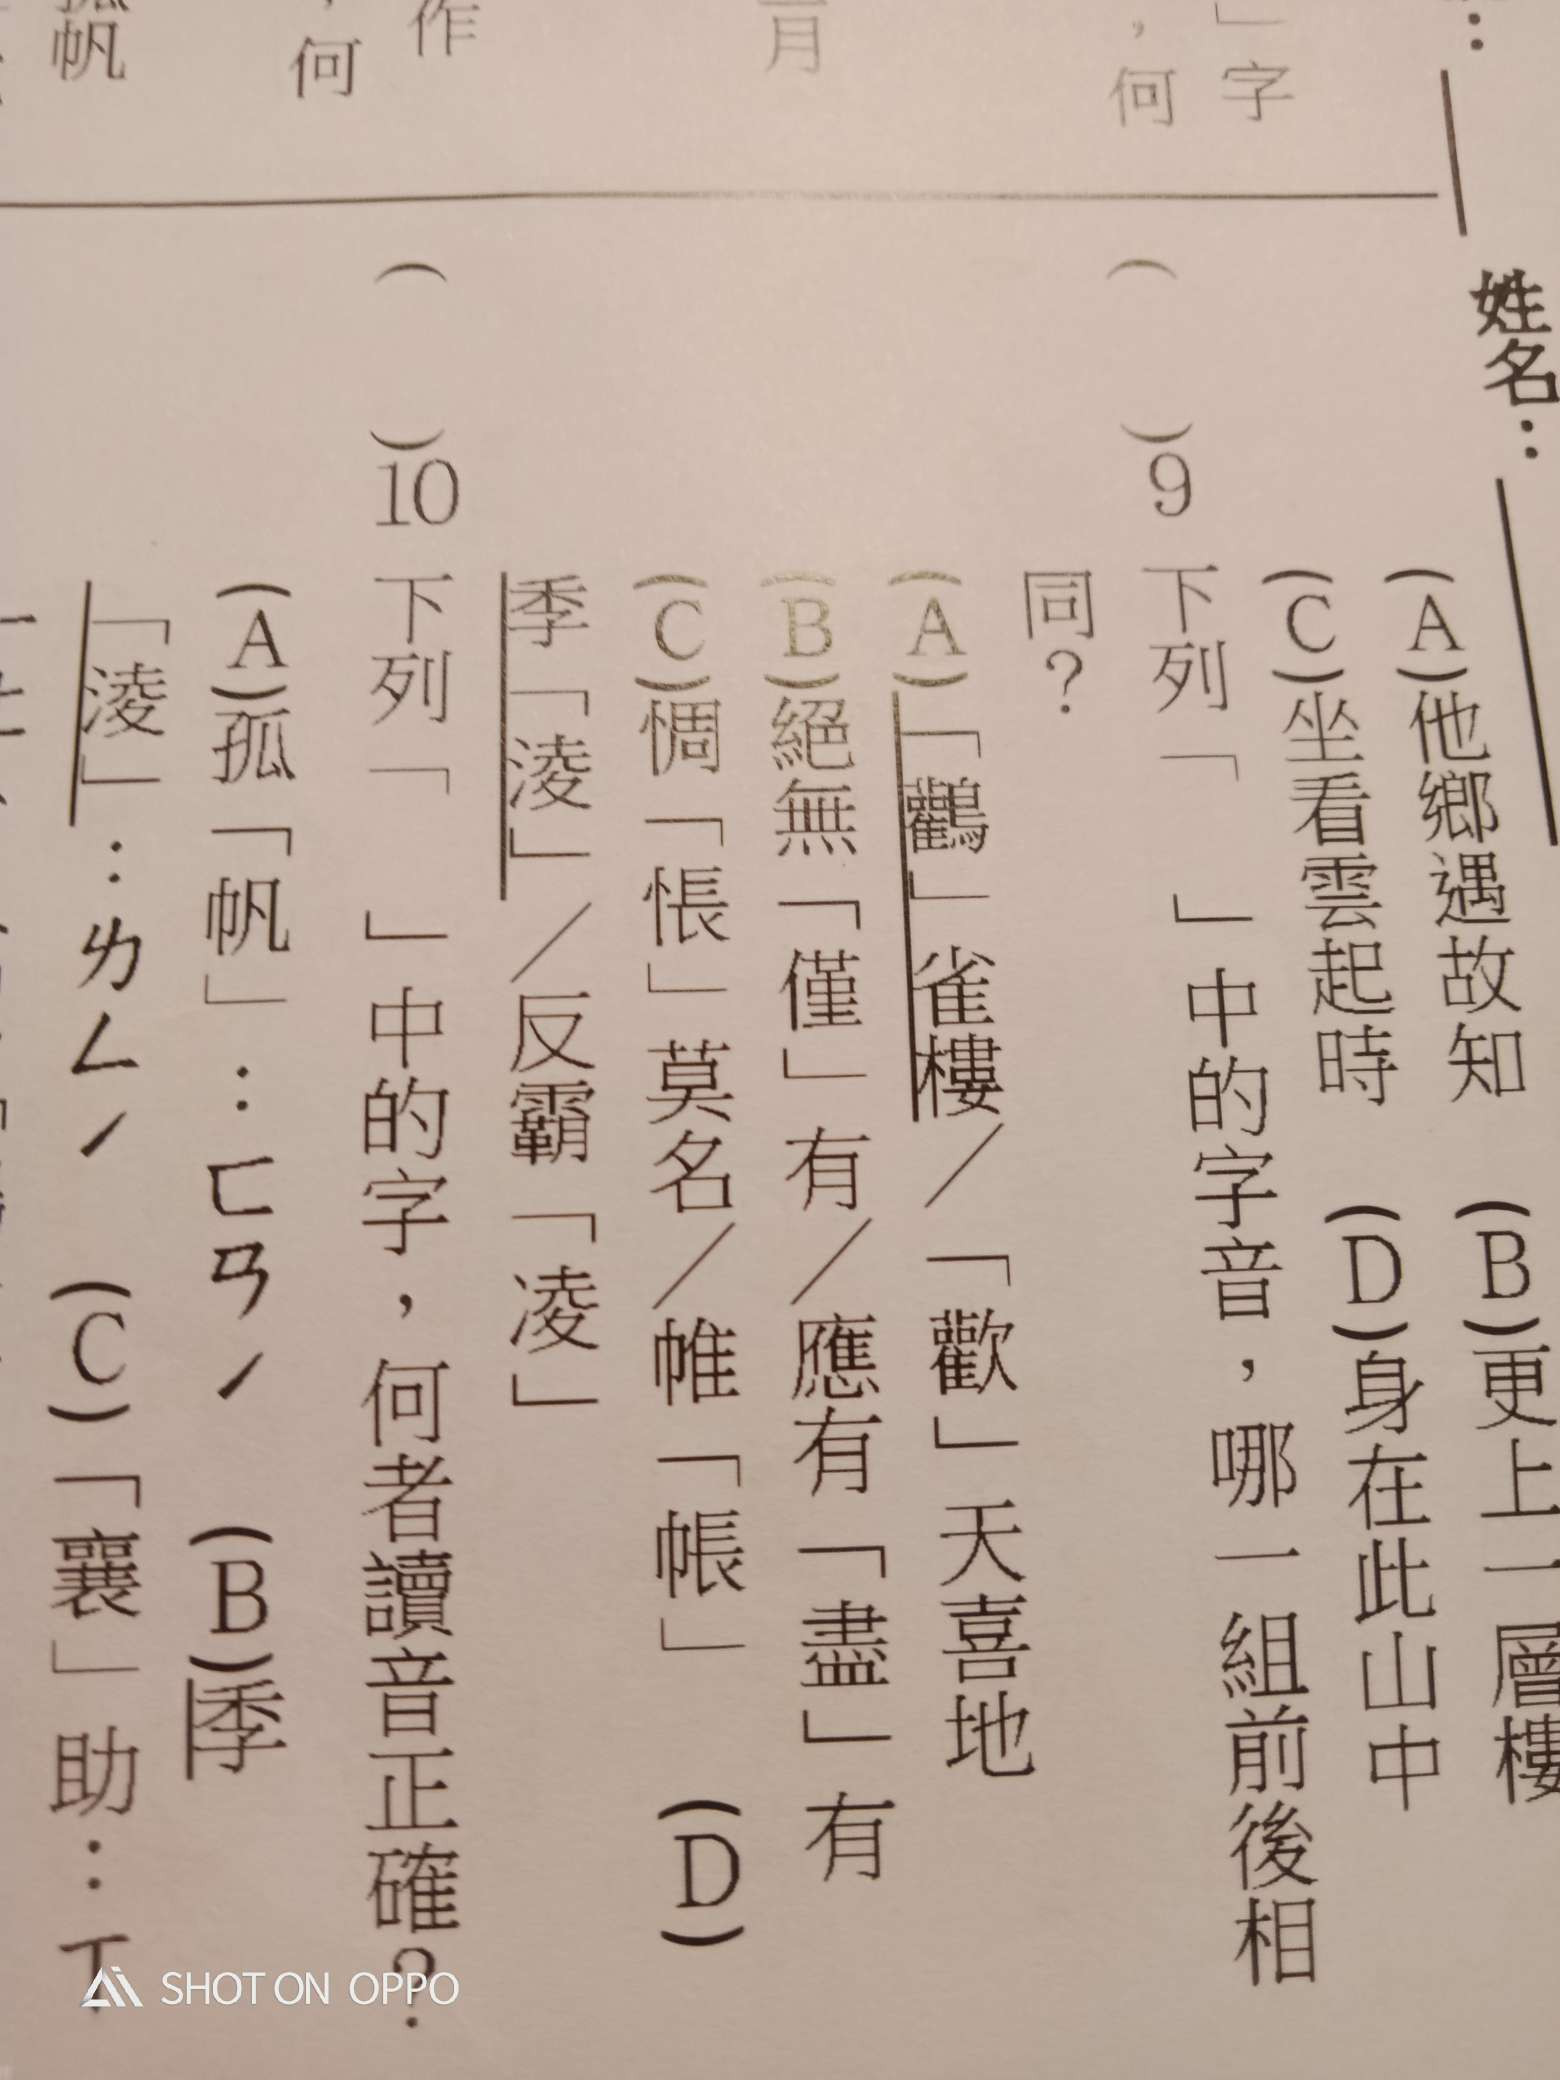 姓名：
(A)他鄉遇故知 (B)更上一層樓
(C)坐看雲起時 (D)身在此山中
( )9 下列「 」中的字音，哪一組前後相
同？
(A)「鸛」雀樓／「歡」天喜地
(B)絕無「僅」有／應有「盡」有
(C)惆「悵」莫名／帷「帳」 (D)
季「淩」／反霸「凌」
( )10 下列「 」中的字，何者讀音正確？
(A)孤「帆」：ㄈㄢˊ (B)季
「淩」：ㄌㄥˊ (C)「襄」助：ㄒ
」字
，何
月
作
，何
帆
SHOT ON OPPO